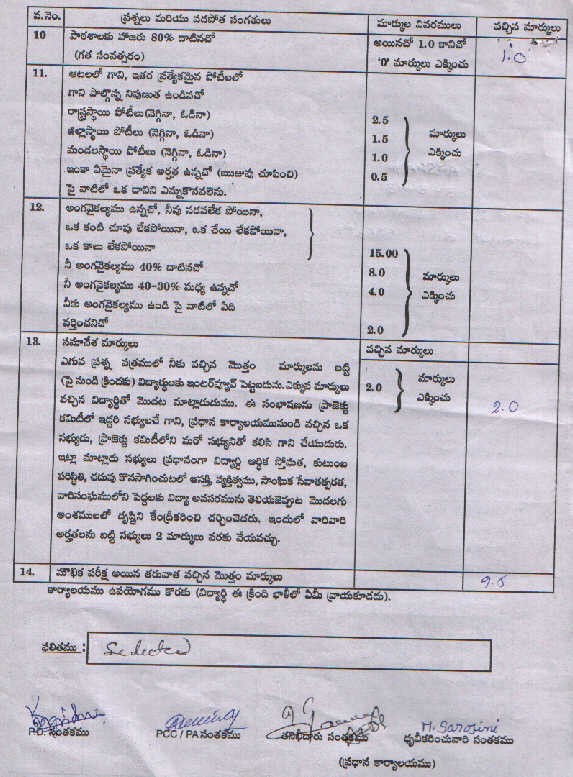 వ.నెం. ప్రశ్నలు మరియు సదపోత సంగతులు మార్కుల వివరములు వచ్చిన మార్కులు
10 పాఠశాలకు హాజరు 80% దాటినదో అయినదో 1.0 కానిచో 1.0
(గత సంవత్సరం) '0' మార్కులు ఎక్కించు
11. ఆటలలో గాని, ఇతర ప్రత్యేకమైన పోటీలలో
గాని పాల్గొన్న నిపుణత ఉండినచో
రాష్ట్రస్థాయి పోటీలు (నెగ్గినా, ఓడినా) 2.5 మార్కులు
జిల్లాస్థాయి పోటీలు (నెగ్గినా, ఓడినా) 1.5 ఎక్కించు
మండలస్థాయి పోటీలు (నెగ్గినా, ఓడినా) 1.0
ఇంకా ఏమైనా ప్రత్యేక అర్హత ఉన్నచో (ఋజువు చూపించి) 0.5
పై వాటిలో ఒక దానిని ఎన్నుకొనవలెను.
12. అంగవైకల్యము ఉన్నచో, నీవు నడవలేక పోయినా,
ఒక కంటి చూపు లేకపోయినా, ఒక చేయి లేకపోయినా,
ఒక కాలు లేకపోయినా 15.00
నీ అంగవైకల్యము 40% దాటినచో 8.0 మార్కులు
నీ అంగవైకల్యము 40-30% మధ్య ఉన్నచో 4.0 ఎక్కించు
నీకు అంగవైకల్యము ఉండి పై వాటిలో ఏది
వర్తించనిచో 2.0
13. సమావేశ మార్కులు వచ్చిన మార్కులు
ఎగువ ప్రశ్న పత్రములో నీకు వచ్చిన మొత్తం మార్కులను బట్టి మార్కులు
(పై నుండి క్రిందకు) విద్యార్థులకు ఇంటర్‌వ్యూవ్ పెట్టబడును. ఎక్కువ మార్కులు 2.0 ఎక్కించు
వచ్చిన విద్యార్థితో మొదట మాట్లాడుదుము. ఈ సంభాషణను ప్రాజెక్టు 2.0
కమిటీలో ఇద్దరి సభ్యులచే గాని, ప్రధాన కార్యాలయమునుండి వచ్చిన ఒక
సభ్యుడు, ప్రాజెక్టు కమిటీలోని మరో సభ్యునితో కలిసి గాని చేయుదురు.
ఇట్లా మాట్లాడు సభ్యులు ప్రధానంగా విద్యార్థి ఆర్థిక స్తోమత, కుటుంబ
పరిస్థితి, చదువు కొనసాగించుటలో ఆసక్తి, వ్యక్తిత్వము, సాంఘిక సేవాతత్పరత,
వారిసంఘములోని పెద్దలకు విద్యా అవసరమును తెలియజెప్పుట మొదలగు
అంశములలో దృష్టిని కేంద్రీకరించి చర్చించెదరు. ఇందులో వారివారి
అర్హతలను బట్టి సభ్యులు 2 మార్కులు వరకు వేయవచ్చు.
14. మౌఖిక పరీక్ష అయిన తరువాత వచ్చిన మొత్తం మార్కులు
కార్యాలయము ఉపయోగము కొరకు (విద్యార్థి ఈ క్రింది ఖాళీలో ఏమీ వ్రాయకూడదు).
ఫలితము : Selected
M. Sarojini
P.O. సంతకము PCC / PA సంతకము తనిఖీదారు సంతకము ధృవీకరించువారి సంతకము
(ప్రధాన కార్యాలయము)